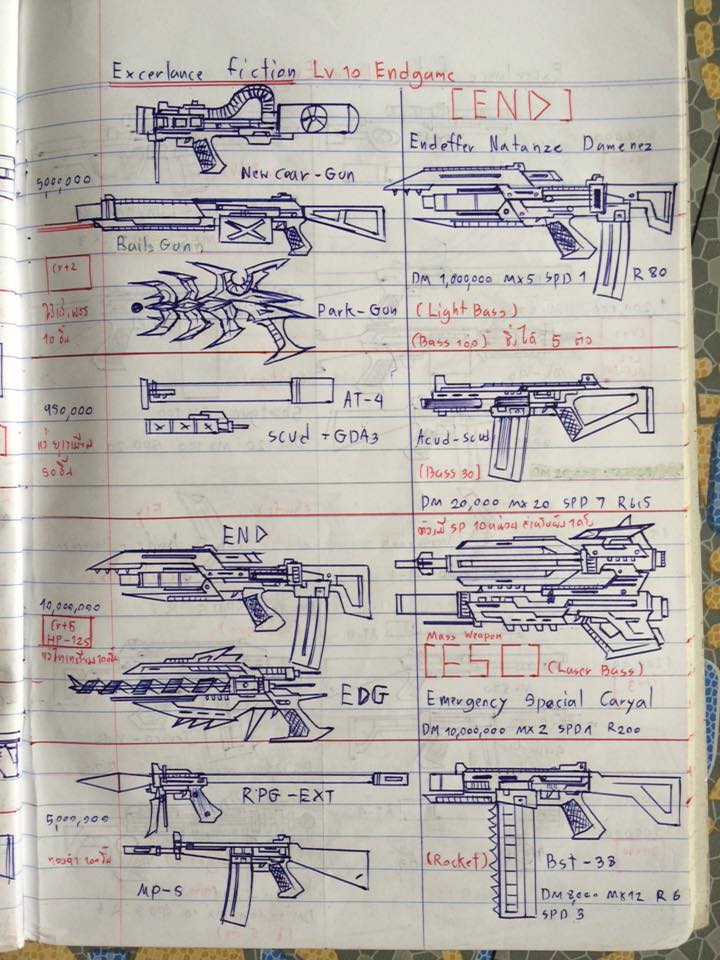 Excerlance fiction Lv 10 Endgame
New Coar-Gun
5000,000
Rails Gun
Cr+2
10 ชิ้น
Park-Gun
[END]
Endeffer Natanze Damenez
DM 1,000,000 MX5 SPD 1 R 80
(Light Bass)
(Bass 100) ซึ่งได้ 5 ตัว
950,000
แร่ยูเรเนียม
50 ชิ้น
AT-4
Scud + GDA3
Acud-scud
(Bass 30)
DM 20,000 MX 20 SPD 7 R 6.5
END
10,000,000
Cr+5
HP-125
EDG
Mass Weapon
[ESC] (Laser Bass)
Emergency Special Caryal
DM 10,000,000 MX 2 SPD 1 R200
5,000,000
RPG-EXT
MP-5
(Rocket) Bst-38
DM 8,000 MX12 R 6
SPD 3